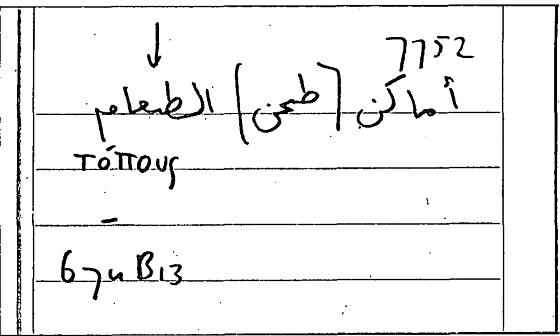 7752
أماكن (طحن) الطعام
τόπους
–
67u B13